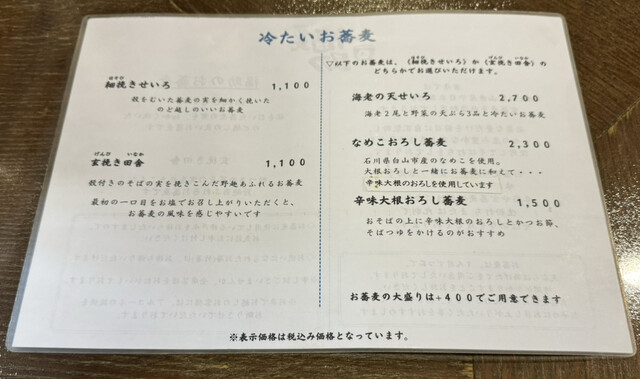 冷たいお蕎麦
ほそび
細挽きせいろ 1,100
殻をむいた蕎麦の実を細かく挽いた
のど越しのいいお蕎麦
げんび いなか
玄挽き田舎 1,100
殻付きのそばの実を挽きこんだ野趣あふれるお蕎麦
最初の一口目をお塩でお召し上がりいただくと、
お蕎麦の風味を感じやすいです
▽以下のお蕎麦は、(細挽きせいろ)か(玄挽き田舎)の
どちらかでお選びいただけます。
海老の天せいろ 2,700
海老2尾と野菜の天ぷら3品と冷たいお蕎麦
なめこおろし蕎麦 2,300
石川県白山市産のなめこを使用。
大根おろしと一緒にお蕎麦に和えて・・・
辛味大根のおろしを使用しています
辛味大根おろし蕎麦 1,500
おそばの上に辛味大根のおろしとかつお節、
そばつゆをかけるのがおすすめ
お蕎麦の大盛りは+400でご用意できます
※表示価格は税込み価格となっています。